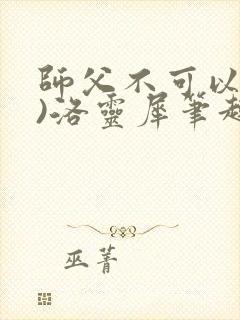 師父不可以
)洛靈犀筆趣
巫菁